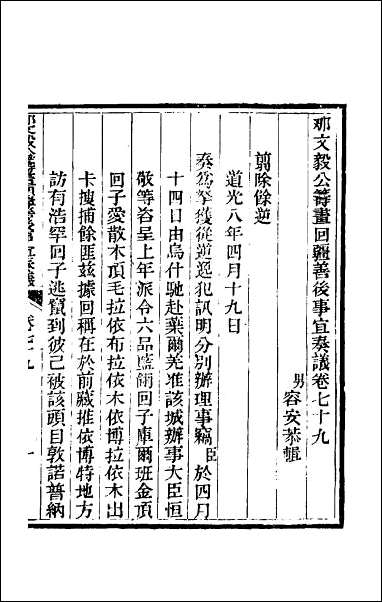 那文毅公籌畫回疆善後事宜奏議卷七十九
男容安恭輯
翦除餘逆
道光八年四月十九日
奏爲拏獲從逆逸犯訊明分別辦理事竊臣於四月
十四日由烏什馳赴葉爾羌准該城辦事大臣恒
敬等咨呈上年派令六品藍翎回子庫爾班金頂
回子愛散木頂毛拉依布拉依木依博拉依木出
卡搜捕餘匪茲據回稱在於前藏推依博特地方
訪有浩罕回子逃竄到彼已被該頭目敦諾普納